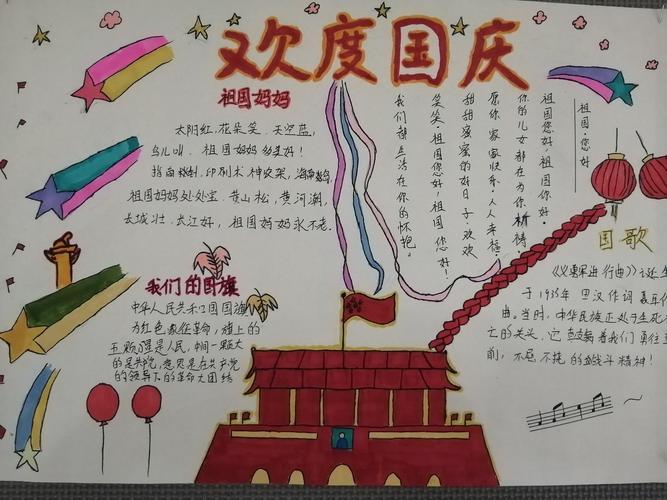 欢度国庆
祖国妈妈
太阳红,花朵笑,天空蓝,
鸟儿叫,祖国妈妈多美好!
指南针,印刷术
祖国妈妈处处宝,黄山松,黄河潮,
长城壮,长江好,祖国妈妈永不老。
我们的国旗
中华人民共和国国旗
为红色,象征革命,旗上的
五颗
的是共产党,
的领导下的革命大团结
祖国,您好
祖国您好,祖国你好。
你的儿女都在为你祈祷。
愿你家家快乐,人人幸福。
甜甜蜜蜜的好日子,欢欢
笑笑。祖国您好,祖国您好!
我们都生活在你的怀抱。
国歌
《义勇军进行曲》
于1935年田汉作词聂耳作
曲。当时,中华民族正处于生死存
亡的关头,它鼓舞着我们勇往直
前,不屈不挠的战斗精神!